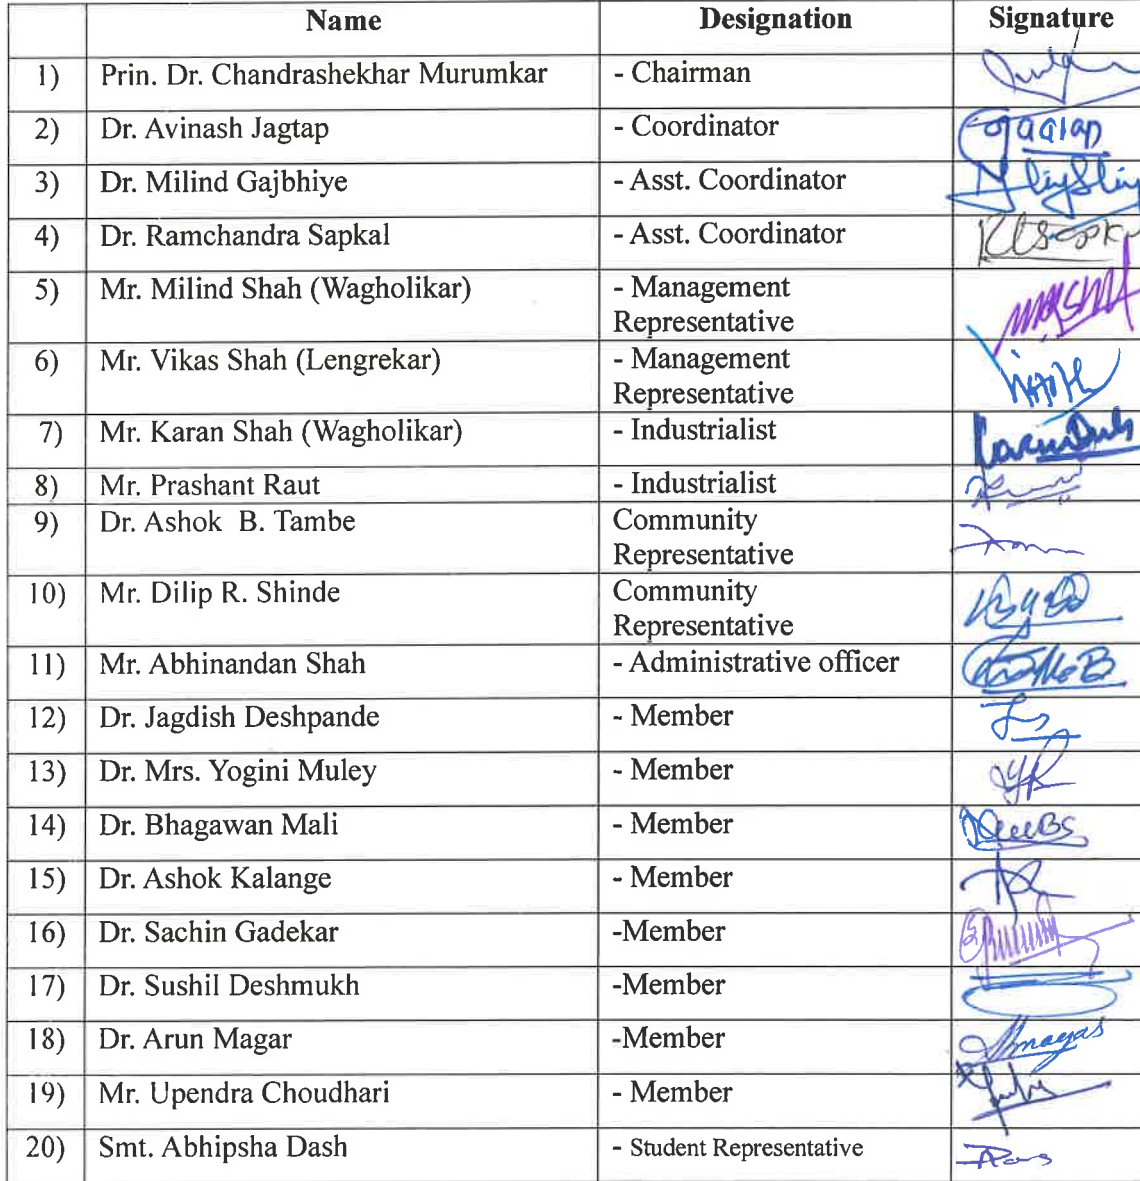 Name Designation Signature
1) Prin. Dr. Chandrashekhar Murumkar - Chairman
2) Dr. Avinash Jagtap - Coordinator
3) Dr. Milind Gajbhiye - Asst. Coordinator
4) Dr. Ramchandra Sapkal - Asst. Coordinator
5) Mr. Milind Shah (Wagholikar) - Management
Representative
6) Mr. Vikas Shah (Lengrekar) - Management
Representative
7) Mr. Karan Shah (Wagholikar) - Industrialist
8) Mr. Prashant Raut - Industrialist
9) Dr. Ashok B. Tambe Community
Representative
10) Mr. Dilip R. Shinde Community
Representative
11) Mr. Abhinandan Shah - Administrative officer
12) Dr. Jagdish Deshpande - Member
13) Dr. Mrs. Yogini Muley - Member
14) Dr. Bhagawan Mali - Member
15) Dr. Ashok Kalange - Member
16) Dr. Sachin Gadekar -Member
17) Dr. Sushil Deshmukh -Member
18) Dr. Arun Magar -Member
19) Mr. Upendra Choudhari - Member
20) Smt. Abhipsha Dash - Student Representative